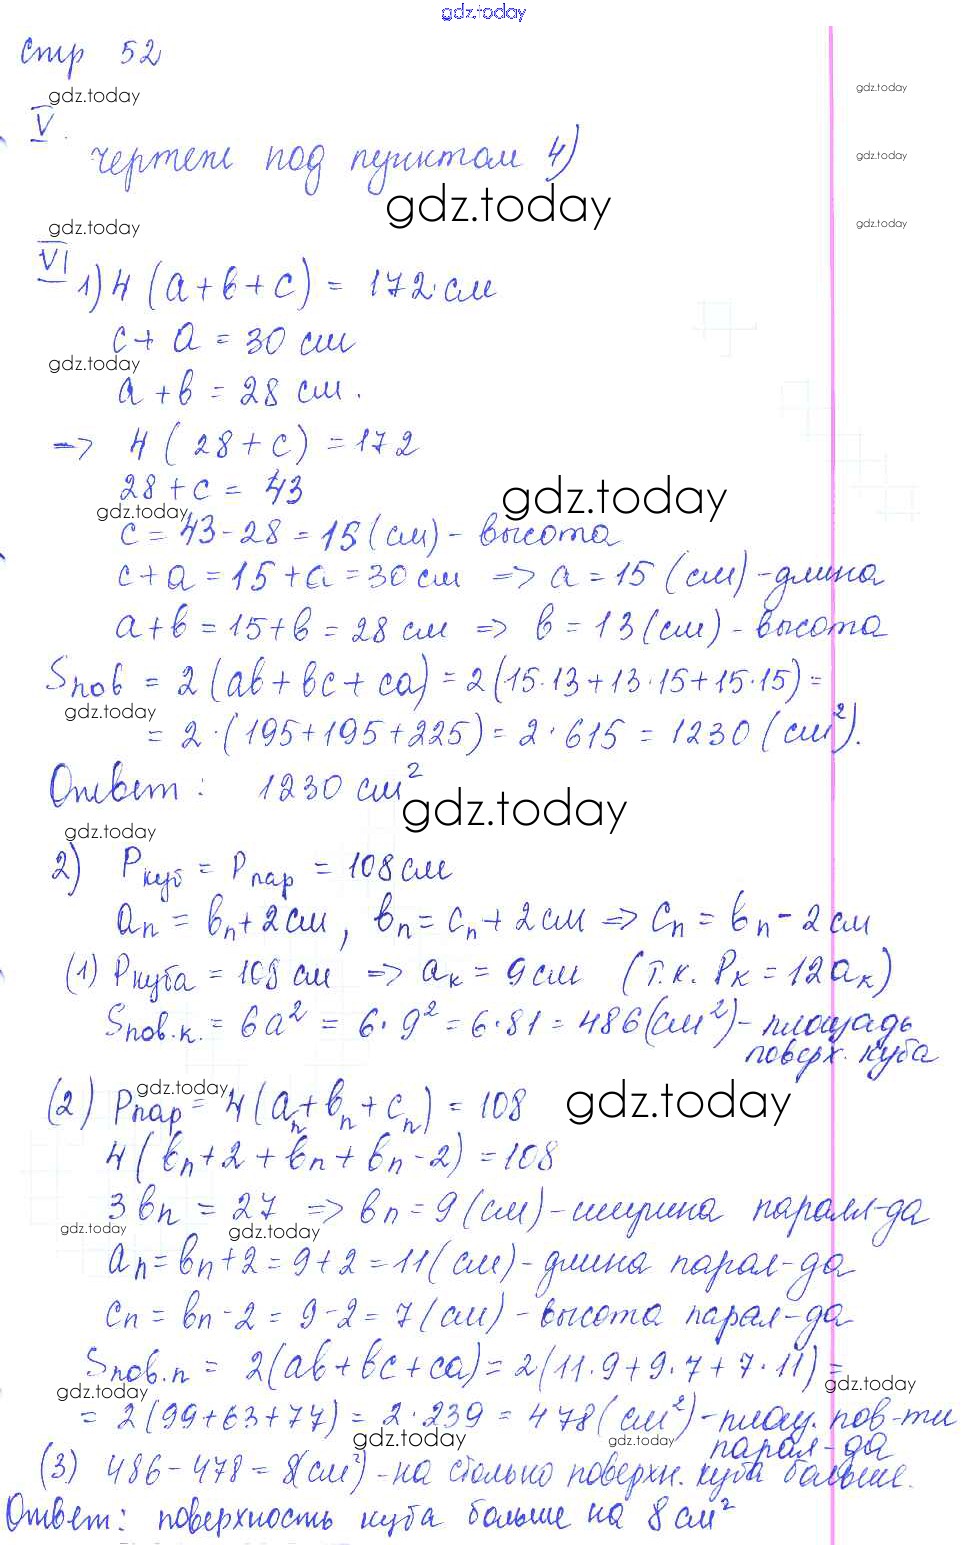 gdz.today
Стр 52
gdz.today
gdz.today
V.
чертеж под пунктом 4)
gdz.today
gdz.today
gdz.today
gdz.today
VI
1) 4 (a+b+c) = 172 см
c+a = 30 см
gdz.today
a+b = 28 см.
=> 4 (28+c) = 172
28+c = 43
gdz.today
gdz.today
c = 43-28 = 15 (см) - высота
c+a = 15+a = 30 см => a = 15 (см) - длина
a+b = 15+b = 28 см => b = 13 (см) - высота
Sпов = 2 (ab+bc+ca) = 2 (15·13+13·15+15·15) =
gdz.today
= 2·(195+195+225) = 2·615 = 1230 (см²).
Ответ: 1230 см²
gdz.today
gdz.today
2) Pкуб = Pпар = 108 см
aп = bп+2 см, bп = cп+2 см => cп = bп-2 см
(1) Pкуба = 108 см => aк = 9 см (т.к. Pк = 12aк)
Sпов.к. = 6a² = 6·9² = 6·81 = 486 (см²) - площадь
поверх. куба
gdz.today
gdz.today
(2) Pпар = 4 (aп+bп+cп) = 108
4 (bп+2+bп+bп-2) = 108
3bп = 27 => bп = 9 (см) - ширина паралл-да
gdz.today
gdz.today
aп = bп+2 = 9+2 = 11 (см) - длина парал-да
cп = bп-2 = 9-2 = 7 (см) - высота парал-да
Sпов.п = 2(ab+bc+ca) = 2(11·9+9·7+7·11) =
gdz.today
gdz.today
= 2(99+63+77) = 2·239 = 478 (см²) - площ. пов-ти
парал-да
gdz.today
gdz.today
(3) 486-478 = 8(см²) - на столько поверхн. куба больше.
Ответ: поверхность куба больше на 8 см²